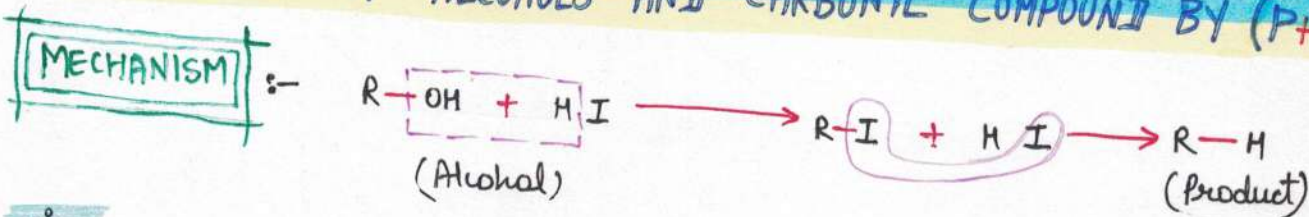 ALCOHOLS AND CARBONYL COMPOUND BY (P+
MECHANISM :-
R-OH + HI → R-I + HI → R-H
(Alcohal) (Product)